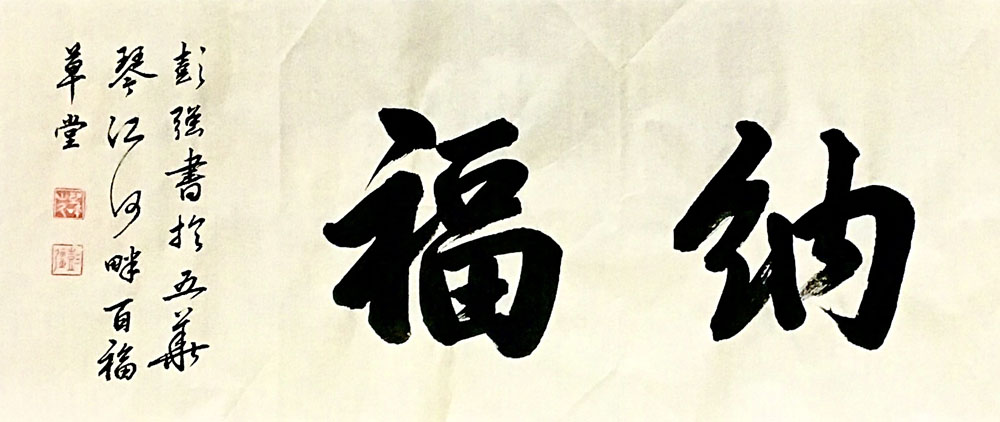 纳福
彭强书于五華
琴江河畔百福
草堂